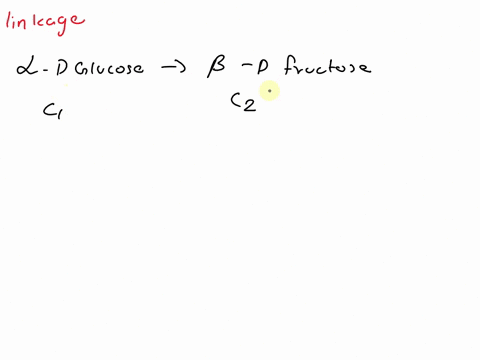 linkage
α-D Glucose → β-D fructose
C1 C2